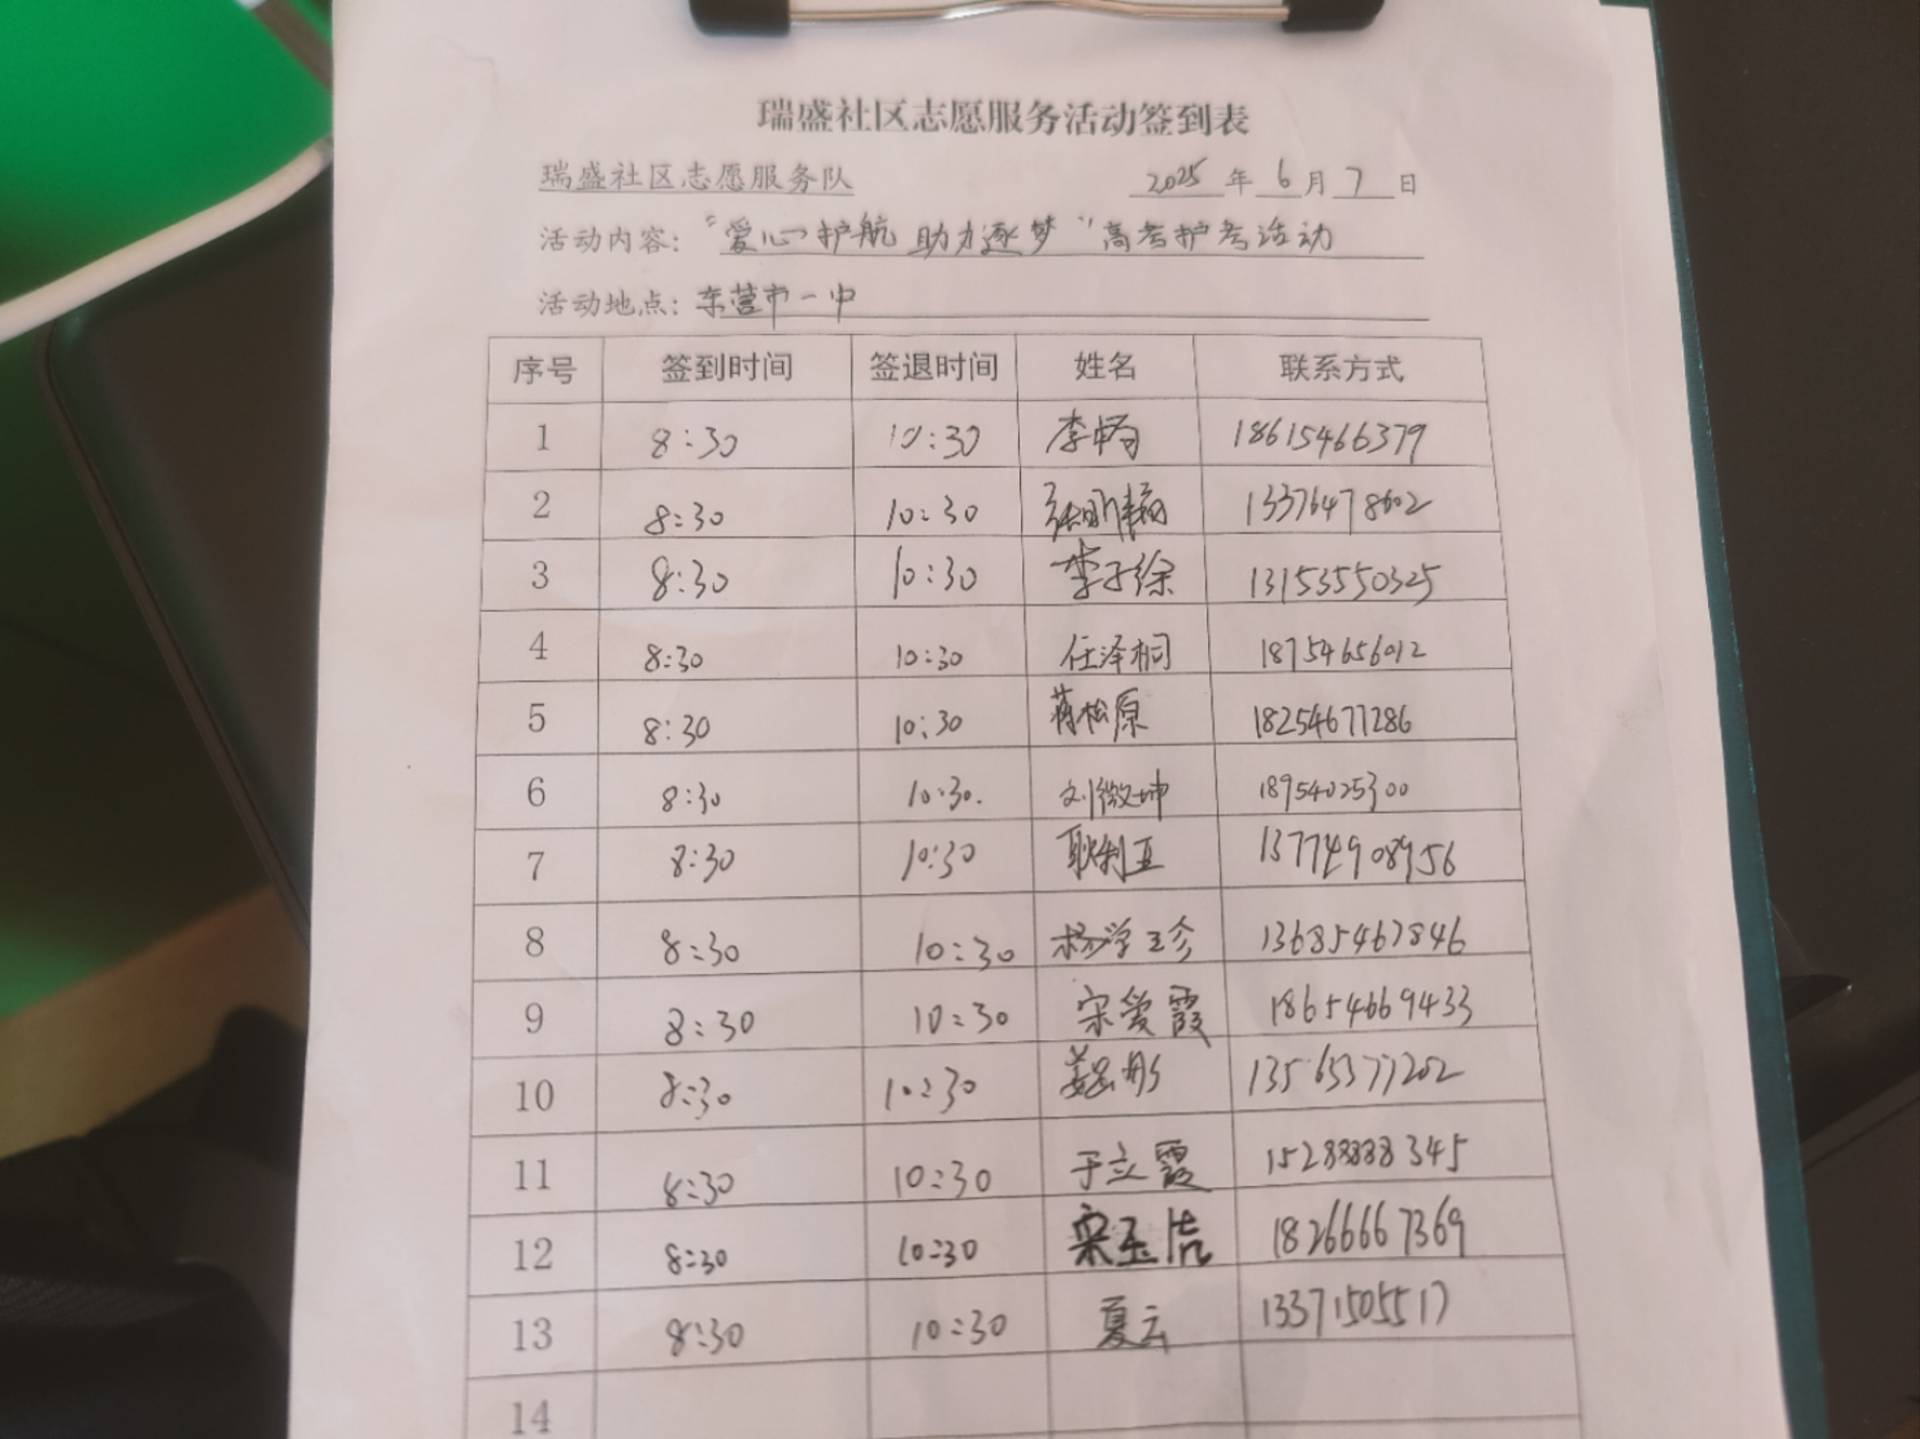 瑞盛社区志愿服务活动签到表
瑞盛社区志愿服务队 2025年6月7日
活动内容：“爱心护航 助力逐梦”高考护考活动
活动地点：东营市一中
序号 签到时间 签退时间 姓名 联系方式
1 8:30 10:30 李 18615466379
2 8:30 10:30 13376478602
3 8:30 10:30 李子徐 13153550325
4 8:30 10:30 任泽桐 18754656012
5 8:30 10:30 蒋松原 18254677286
6 8:30 10:30. 刘微坤 18954025300
7 8:30 10:30 耿利
8 8:30 10:30 杨学珍 13685467846
9 8:30 10:30 宋爱霞 18654669433
10 8:30 10:30 13563377202
11 8:30 10:30 于立霞 15288888345
12 8:30 10:30 宋玉洁 18266667369
13 8:30 10:30 夏云 13371505517
14